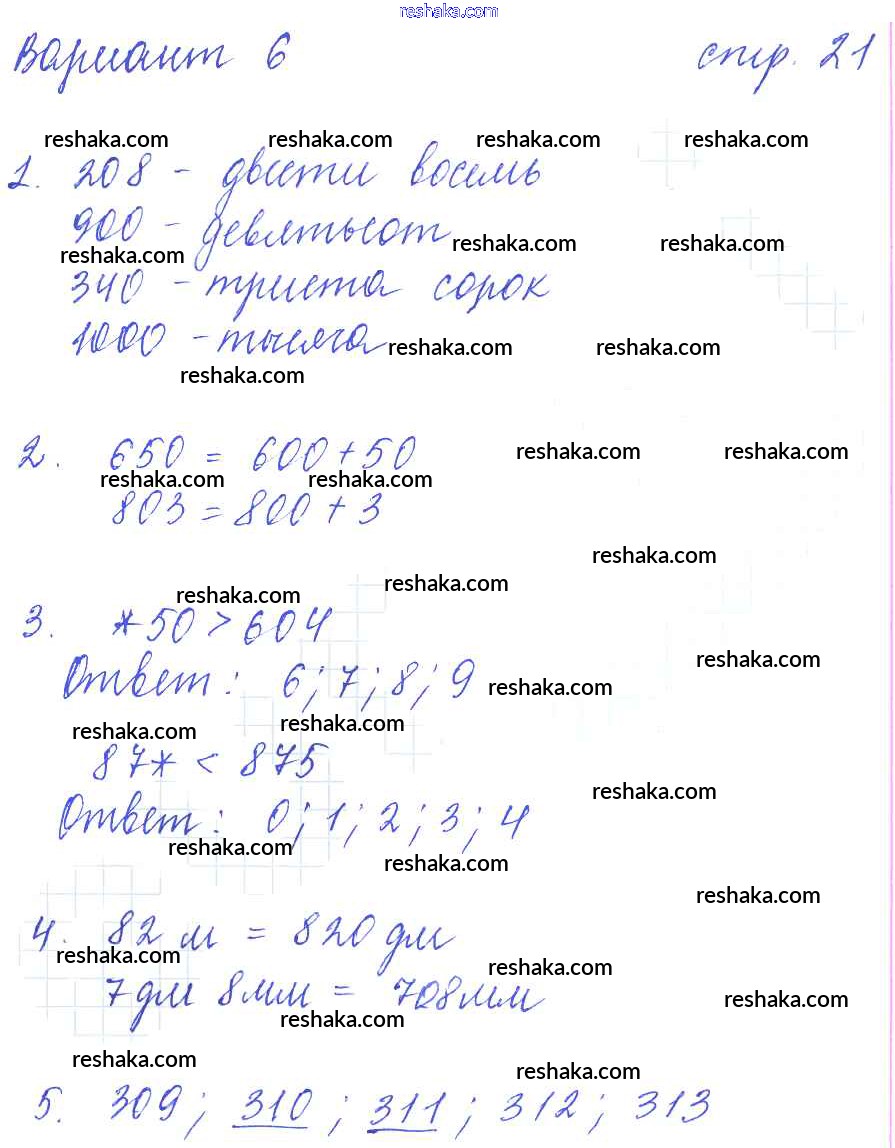 reshaka.com
Вариант 6 стр. 21
reshaka.com reshaka.com reshaka.com reshaka.com
1. 208 - двести восемь
900 - девятьсот reshaka.com reshaka.com
reshaka.com
340 - триста сорок
1000 - тысяча reshaka.com reshaka.com
reshaka.com
2. 650 = 600 + 50 reshaka.com reshaka.com
reshaka.com reshaka.com
803 = 800 + 3
reshaka.com
reshaka.com reshaka.com
3. *50 > 604
reshaka.com
Ответ: 6; 7; 8; 9 reshaka.com
reshaka.com reshaka.com
87* < 875
reshaka.com
Ответ: 0; 1; 2; 3; 4
reshaka.com reshaka.com
reshaka.com
4. 82 м = 820 дм
reshaka.com reshaka.com
7 дм 8 мм = 708 мм reshaka.com
reshaka.com
reshaka.com reshaka.com
5. 309; 310; 311; 312; 313